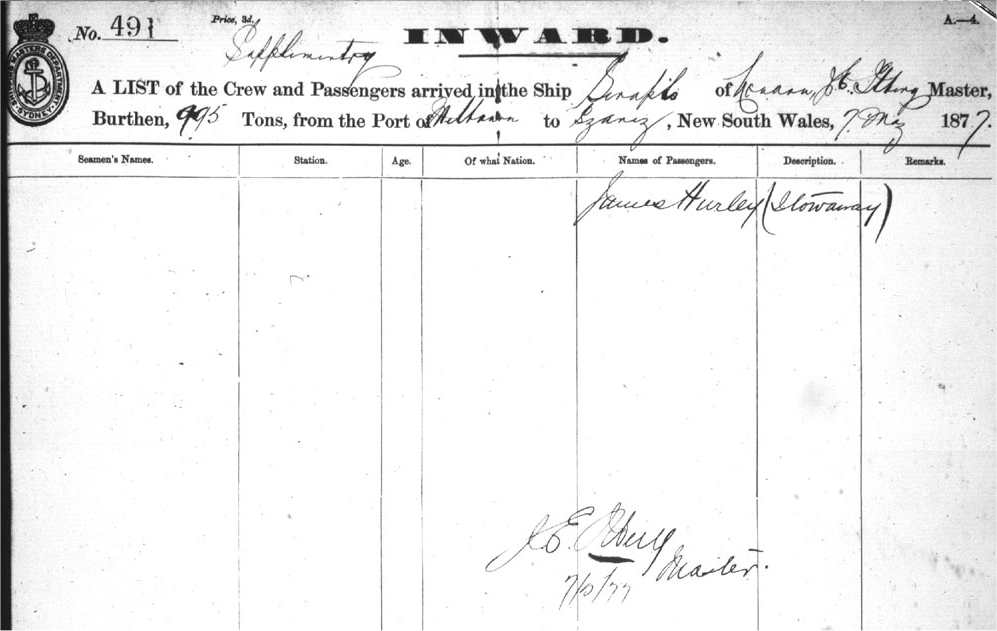 No. 491
Price, 3d.
Supplimentry
INWARD.
A.—4.
SHIPPING MASTERS DEPARTMENT SYDNEY
A LIST of the Crew and Passengers arrived in the Ship of London, J. E. Master,
Burthen, 995 Tons, from the Port of to Sydney, New South Wales, 7. May 1877.
Seamen's Names. Station. Age. Of what Nation. Names of Passengers. Description. Remarks.
James Hurley (Stowaway)
J E.
Master.
7/5/77